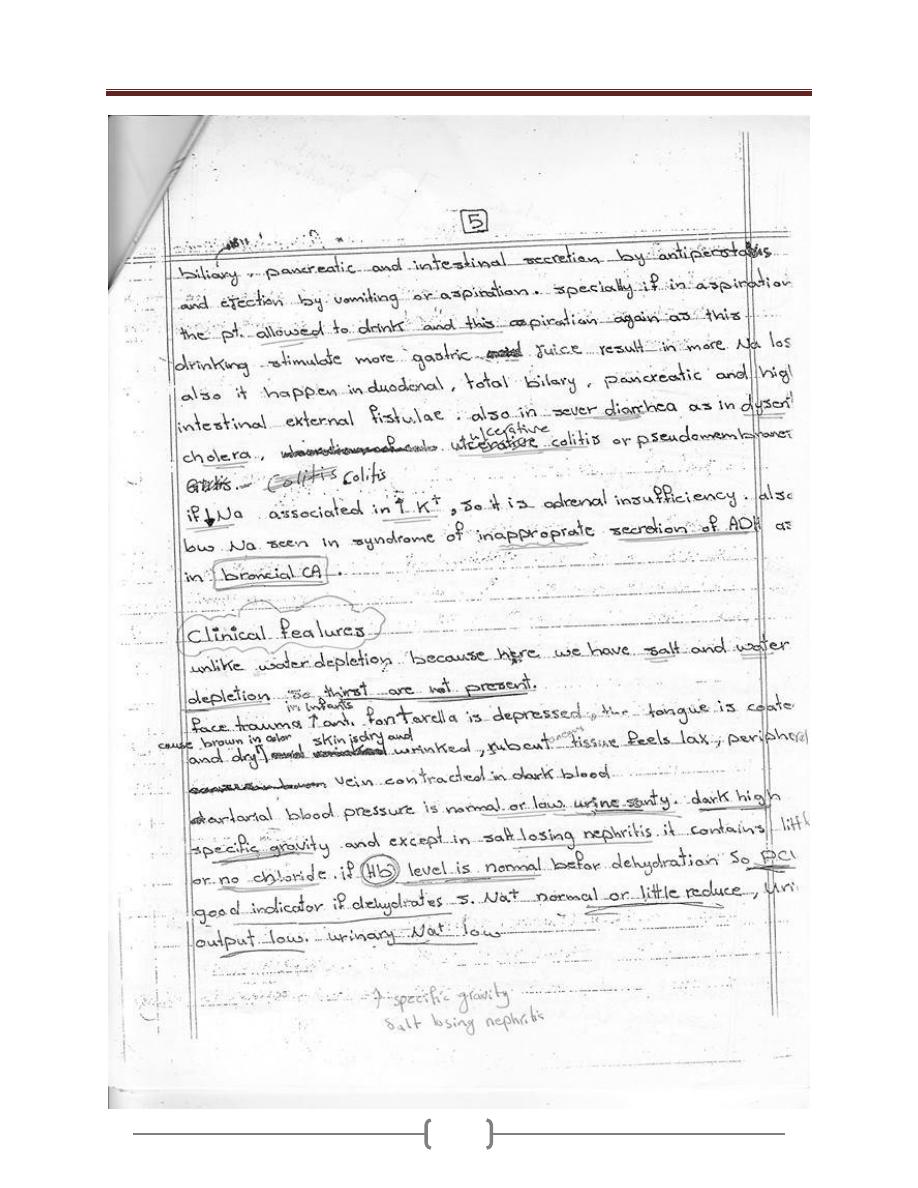 5
biliary, pancreatic and intestinal secretion by antiperstalsis
and ejection by vomiting or aspiration. specially if in aspiration
the pt. allowed to drink and this aspiration again as this
drinking stimulate more gastric juice result in more Na los
also it happen in duodenal, total bilary, pancreatic and high
intestinal external fistulae. also in sever diarrhea as in dysent
cholera, ulcerative colitis or pseudomembranes
Colitis
if ↓Na associated in ↑ K+, so it is adrenal insufficiency. also
low Na seen in syndrome of inapproprate secretion of ADH as
in broncial CA.
Clinical features
unlike water depletion because here we have salt and water
depletion so thirst are not present.
in infants
face trauma ↑ ant. fontanella is depressed, the tongue is coate
cause brown in color skin is dry and
and dry wrinked, subcut tissue feels lax, peripheral
vein contracted in dark blood
artarial blood pressure is normal or low. urine scanty. dark high
specific gravity and except in salt losing nephritis it contains littl
or no chloride. if Hb level is normal befor dehydration so PCV
good indicator if dehydrates S. Na+ normal or little reduce, Uri
output low. urinary Na+ low
specific gravity
salt losing nephritis